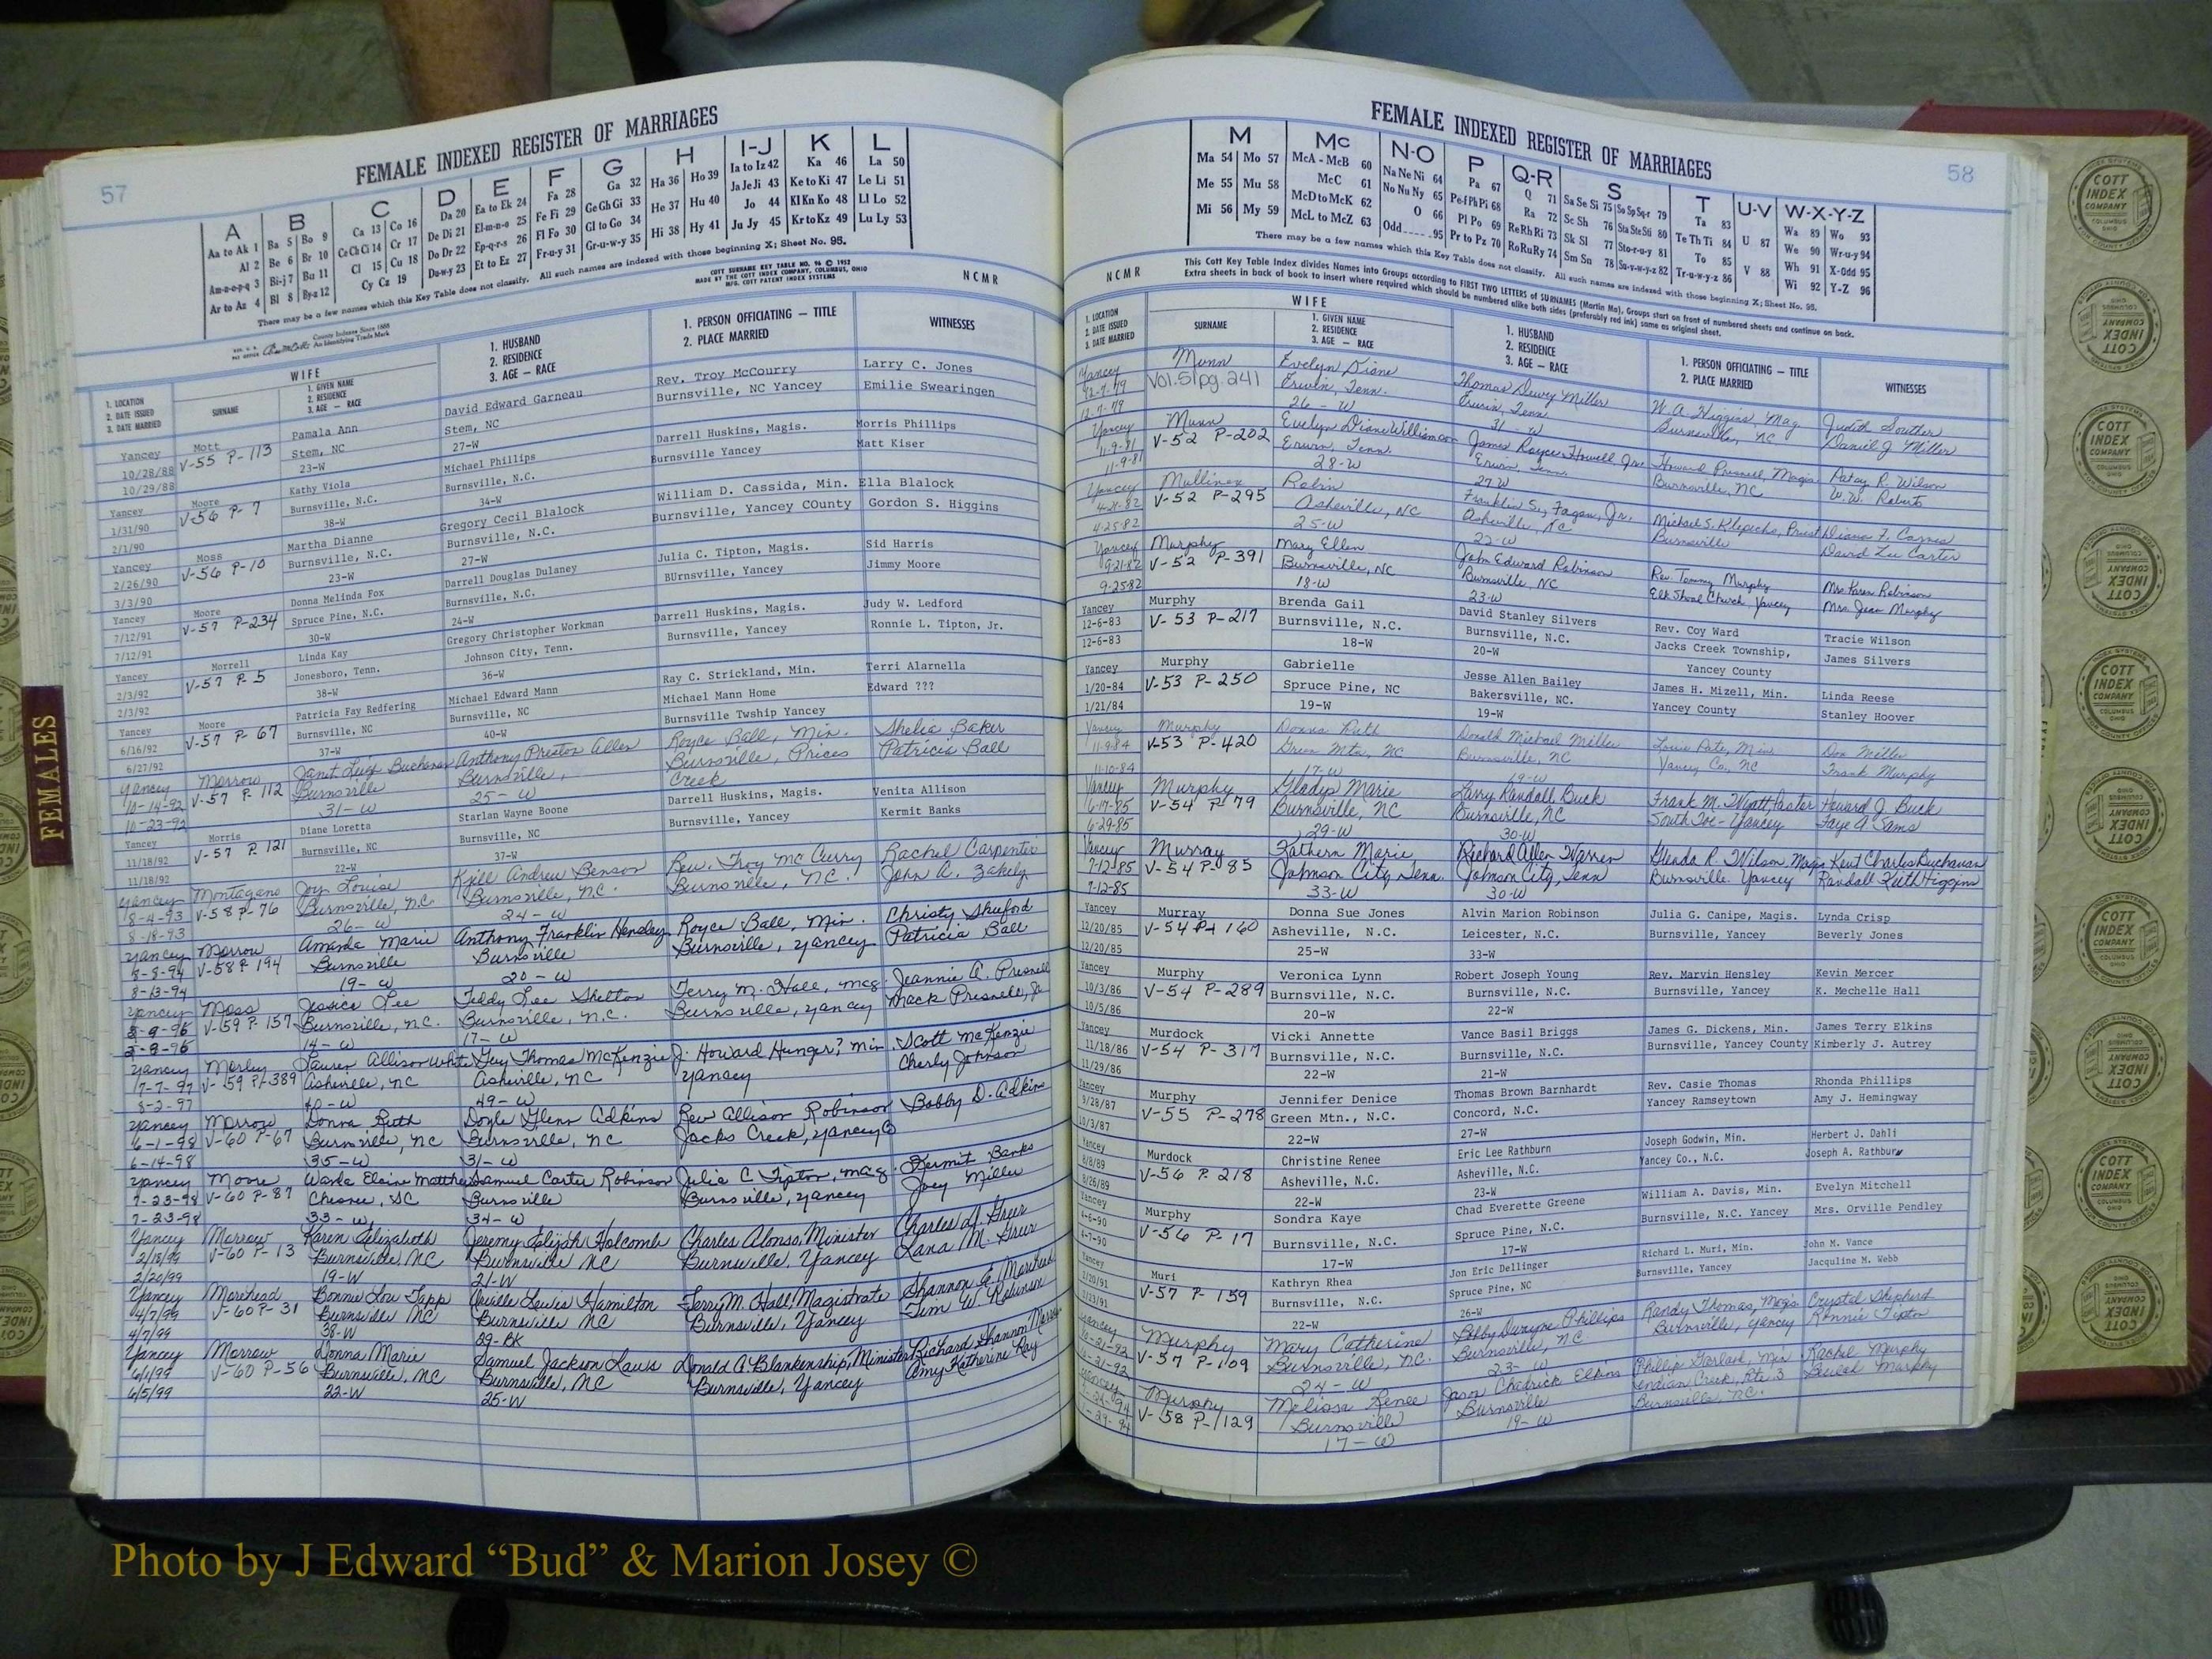 57
FEMALE INDEXED REGISTER OF MARRIAGES
A B C D E F G H I-J K L
Aa to Ak 1 Ba 5 Bo 9 Ca 13 Co 16 Da 20 Ea to Ek 24 Fa 28 Ga 32 Ha 36 Ho 39 Ia to Iz 42 Ka 46 La 50
Al 2 Be 6 Br 10 Ce Ch Ci 14 Cr 17 De Di 21 El-m-n-o 25 Fe Fi 29 Ge Gh Gi 33 He 37 Hu 40 Ja Je Ji 43 Ke to Ki 47 Le Li 51
Am-n-o-p-q 3 Bi-j 7 Bu 11 Cl 15 Cu 18 Do Dr 22 Ep-q-r-s 26 Fl Fo 30 Gl to Go 34 Hi 38 Hy 41 Jo 44 Kl Kn Ko 48 Ll Lo 52
Ar to Az 4 Bl 8 By-z 12 Cy Cz 19 Du-w-y 23 Et to Ez 27 Fr-u-y 31 Gr-u-w-y 35 Ju Jy 45 Kr to Kz 49 Lu Ly 53
There may be a few names which this Key Table does not classify. All such names are indexed with those beginning X; Sheet No. 95.
COTT SURNAME KEY TABLE NO. 96 © 1952
MADE BY THE COTT INDEX COMPANY, COLUMBUS, OHIO
MFG. COTT PATENT INDEX SYSTEMS
NCMR
County Indexes Since 1888
An Identifying Trade Mark
1. LOCATION
2. DATE ISSUED
3. DATE MARRIED
WIFE
SURNAME
1. GIVEN NAME
2. RESIDENCE
3. AGE — RACE
1. HUSBAND
2. RESIDENCE
3. AGE — RACE
1. PERSON OFFICIATING — TITLE
2. PLACE MARRIED
WITNESSES
Yancey Mott Pamala Ann David Edward Garneau Rev. Troy McCourry Larry C. Jones
10/28/88 V-55 P-113 Stem, NC Stem, NC Burnsville, NC Yancey Emilie Swearingen
10/29/88 23-W 27-W
Yancey Moore Kathy Viola Michael Phillips Darrell Huskins, Magis. Morris Phillips
1/31/90 V-56 P-7 Burnsville, N.C. Burnsville, N.C. Burnsville Yancey Matt Kiser
2/1/90 38-W 34-W
Yancey Moss Martha Dianne Gregory Cecil Blalock William D. Cassida, Min. Ella Blalock
2/26/90 V-56 P-10 Burnsville, N.C. Burnsville, N.C. Burnsville, Yancey COunty Gordon S. Higgins
3/3/90 23-W 27-W
Yancey Moore Donna Melinda Fox Darrell Douglas Dulaney Julia C. Tipton, Magis. Sid Harris
7/12/91 V-57 P-234 Spruce Pine, N.C. Burnsville, N.C. BUrnsville, Yancey Jimmy Moore
7/12/91 30-W 24-W
Yancey Morrell Linda Kay Gregory Christopher Workman Darrell Huskins, Magis. Judy W. Ledford
2/3/92 V-57 P-5 Jonesboro, Tenn. Johnson City, Tenn. Burnsville, Yancey Ronnie L. Tipton, Jr.
2/3/92 38-W 36-W
Yancey Moore Patricia Fay Redfering Michael Edward Mann Ray C. Strickland, Min. Terri Alarnella
6/16/92 V-57 P-67 Burnsville, NC Burnsville, NC Michael Mann Home Edward ???
6/27/92 37-W 40-W Burnsville Twship Yancey
Yancey Morrow Janet Lugy Buchanan Anthony Preston Allen Royce Ball, Min. Shelia Baker
10-14-92 V-57 P-112 Burnsville Burnsville, Burnsville, Prices Patricia Ball
10-23-92 31-W 25-W Creek
Yancey Morris Diane Loretta Starlan Wayne Boone Darrell Huskins, Magis. Venita Allison
11/18/92 V-57 P-121 Burnsville, NC Burnsville, NC Burnsville, Yancey Kermit Banks
11/18/92 22-W 37-W
Yancey Montagano Joy Louise Kyle Andrew Benson Rev. Troy McCurry Rachel Carpenter
8-4-93 V-58 P-76 Burnsville, N.C. Burnsville, N.C. Burnsville, N.C. John A.
8-18-93 26-W 24-W
Yancey Morrow Amanda Marie Anthony Franklin Hensley Royce Ball, Min. Christy Shuford
8-8-94 V-58 P-194 Burnsville Burnsville Burnsville, Yancey Patricia Ball
8-13-94 19-W 20-W
Yancey Moss Jessica Lee Teddy Lee Shelton Terry M. Hall, Mag. Jeannie A. Presnell
V-59 P-157 Burnsville, N.C. Burnsville, N.C. Burnsville, Yancey Mack Presnell, Jr.
14-W 17-W
Yancey Morley Lauren Allison White Guy Thomas McKenzie J. Howard Hunger? Min. Scott McKenzie
7-7-97 V-59 P-389 Asheville, NC Asheville, NC Yancey Cherly Johnson
8-2-97 40-W 49-W
Yancey Morrow Donna Ruth Doyle Glenn Adkins Rev Allison Robinson Bobby D. Adkins
6-1-98 V-60 P-67 Burnsville, NC Burnsville, NC Jacks Creek, Yancey Co
6-14-98 35-W 31-W
Yancey Moore Wanda Elaine Matthews Samuel Carter Robinson Julia C Tipton, Mag. Kermit Banks
7-23-98 V-60 P-87 Chesnee, SC Burnsville Burnsville, Yancey Joey Miller
7-23-98 33-W 34-W
Yancey Morrow Karen Elizabeth Jeremy Elijah Holcombe Charles Alonso, Minister Charles D. Greer
2/18/99 V-60 P-13 Burnsville, NC Burnsville NC Burnsville, Yancey Lana M. Greer
2/20/99 19-W 21-W
Yancey Morehead Bonnie Lou Tapp Orville Lewis Hamilton Terry M. Hall, Magistrate Shannon E. Morehead
4/7/99 V-60 P-31 Burnsville NC Burnsville NC Burnsville, Yancey Tim W. Robinson
4/7/99 38-W 39-BK
Yancey Morrow Donna Marie Samuel Jackson Laws Donald A. Blankenship, Minister Richard Shannon Morrow
6/1/99 V-60 P-56 Burnsville, NC Burnsville, NC Burnsville, Yancey Amy Katherine Ray
6/5/99 22-W 25-W
FEMALES
58
FEMALE INDEXED REGISTER OF MARRIAGES
M Mc N-O P Q-R S T U-V W-X-Y-Z
Ma 54 Mo 57 McA - McB 60 Na Ne Ni 64 Pa 67 Q 71 Sa Se Si 75 So Sp Sq-r 79 Ta 83 U 87 Wa 89 Wo 93
Me 55 Mu 58 McC 61 No Nu Ny 65 Pe-f Ph Pi 68 Ra 72 Sc Sh 76 Sta Ste Sti 80 Te Th Ti 84 V 88 We 90 Wr-u-y 94
Mi 56 My 59 McD to McK 62 O 66 Pl Po 69 Re Rh Ri 73 Sk Sl 77 Sto-r-u-y 81 To 85 Wh 91 X-Odd 95
McL to McZ 63 Odd 95 Pr to Pz 70 Ro Ru Ry 74 Sm Sn 78 Su-v-w-y-z 82 Tr-u-w-y-z 86 Wi 92 Y-Z 96
There may be a few names which this Key Table does not classify. All such names are indexed with those beginning X; Sheet No. 95.
NCMR
This Cott Key Table Index divides Names into Groups according to FIRST TWO LETTERS of SURNAMES (Martin Ma). Groups start on front of numbered sheets and continue on back.
Extra sheets in back of book to insert where required which should be numbered alike both sides (preferably red ink) same as original sheet.
1. LOCATION
2. DATE ISSUED
3. DATE MARRIED
WIFE
SURNAME
1. GIVEN NAME
2. RESIDENCE
3. AGE — RACE
1. HUSBAND
2. RESIDENCE
3. AGE — RACE
1. PERSON OFFICIATING — TITLE
2. PLACE MARRIED
WITNESSES
Yancey Munn Evelyn Diane Thomas Dewy Miller W. A. Higgins, Mag. Judith Souther
12-7-79 Vol. 51 pg. 241 Erwin, Tenn. Erwin, Tenn Burnsville, NC Daniel J. Miller
12-7-79 26-W 31-W
Yancey Munn Evelyn Diane Williamson James Royce Howell, Jr. Howard Presnell, Magis. Patsy R. Wilson
11-9-81 V-52 P-202 Erwin, Tenn. Erwin, Tenn. Burnsville, NC W. W. Roberts
11-9-81 28-W 27 W
Yancey Mullinex Robin Franklin S. Fagan, Jr. Michael S. Klepecks, Priest Diana F. Carnes
4-21-82 V-52 P-295 Asheville, NC Asheville, NC Burnsville David Lee Carter
4-25-82 25-W 22-W
Yancey Murphy Mary Ellen John Edward Robinson Rev. Tommy Murphy Mrs Karen Robinson
9-21-82 V-52 P-391 Burnsville, NC Burnsville, NC Elk Shoal Church, Yancey Mrs. Jean Murphy
9-25-82 18-W 23-W
Yancey Murphy Brenda Gail David Stanley Silvers Rev. Coy Ward Tracie Wilson
12-6-83 V-53 P-217 Burnsville, N.C. Burnsville, N.C. Jacks Creek Township, James Silvers
12-6-83 18-W 20-W Yancey County
Yancey Murphy Gabrielle Jesse Allen Bailey James H. Mizell, Min. Linda Reese
1/20-84 V-53 P-250 Spruce Pine, NC Bakersville, NC. Yancey County Stanley Hoover
1/21/84 19-W 19-W
Yancey Murphy Donna Ruth Donald Michael Miller Louie Pate, Min. Don Miller
11-9-84 V-53 P-420 Green Mtn, NC Burnsville, NC Yancey Co., NC Frank Murphy
11-10-84 17-W 19-W
Yancey Murphy Gladys Marie Larry Randall Buck Frank M. Wyatt, Pastor Howard J. Buck
6-17-85 V-54 P-79 Burnsville, NC Burnsville, NC South Toe - Yancey Faye A. Sams
6-29-85 29-W 30-W
Yancey Murray Kathern Marie Richard Allen Warren Glenda R. Wilson, Magis Kent Charles Buchanan
7-12-85 V-54 P-85 Johnson City, Tenn. Johnson City, Tenn Burnsville. Yancey Randall Keith Higgins
7-12-85 33-W 30-W
Yancey Murray Donna Sue Jones Alvin Marion Robinson Julia G. Canipe, Magis. Lynda Crisp
12/20/85 V-54 P-160 Asheville, N.C. Leicester, N.C. Burnsville, Yancey Beverly Jones
12/20/85 25-W 33-W
Yancey Murphy Veronica Lynn Robert Joseph Young Rev. Marvin Hensley Kevin Mercer
10/3/86 V-54 P-289 Burnsville, N.C. Burnsville, N.C. Burnsville, Yancey K. Mechelle Hall
10/5/86 20-W 22-W
Yancey Murdock Vicki Annette Vance Basil Briggs James G. Dickens, Min. James Terry Elkins
11/18/86 V-54 P-317 Burnsville, N.C. Burnsville, N.C. Burnsville, Yancey County Kimberly J. Autrey
11/29/86 22-W 21-W
Yancey Murphy Jennifer Denice Thomas Brown Barnhardt Rev. Casie Thomas Rhonda Phillips
9/28/87 V-55 P-278 Green Mtn., N.C. Concord, N.C. Yancey Ramseytown Amy J. Hemingway
10/3/87 22-W 27-W
Yancey Murdock Christine Renee Eric Lee Rathburn Joseph Godwin, Min. Herbert J. Dahli
8/8/89 V-56 P-218 Asheville, N.C. Asheville, N.C. Yancey Co., N.C. Joseph A. Rathburn
8/26/89 22-W 23-W
Yancey Murphy Sondra Kaye Chad Everette Greene William A. Davis, Min. Evelyn Mitchell
4-6-90 V-56 P-17 Burnsville, N.C. Spruce Pine, N.C. Burnsville, N.C. Yancey Mrs. Orville Pendley
4-7-90 17-W 17-W
Yancey Muri Kathryn Rhea Jon Eric Dellinger Richard L. Muri, Min. John M. Vance
2/20/91 V-57 P-159 Burnsville, N.C. Spruce Pine, NC Burnsville, Yancey Jacquline M. Webb
22-W 26-W
Yancey Murphy Mary Catherine Bobby Dwayne Phillips Randy Thomas, Magis. Crystal Shepherd
V-57 P-109 Burnsville, NC. Burnsville, NC Burnsville, Yancey Ronnie Tipton
24-W 23-W
Yancey Murphy Melissa Renee Jason Chadrick Elkins Phillip Garland, Min Rachel Murphy
V-58 P-129 Burnsville Burnsville Indian Creek, Rte. 3 Murphy
17-W 19-W Burnsville, NC.
COTT INDEX COMPANY
COLUMBUS OHIO
Photo by J Edward “Bud” & Marion Josey ©